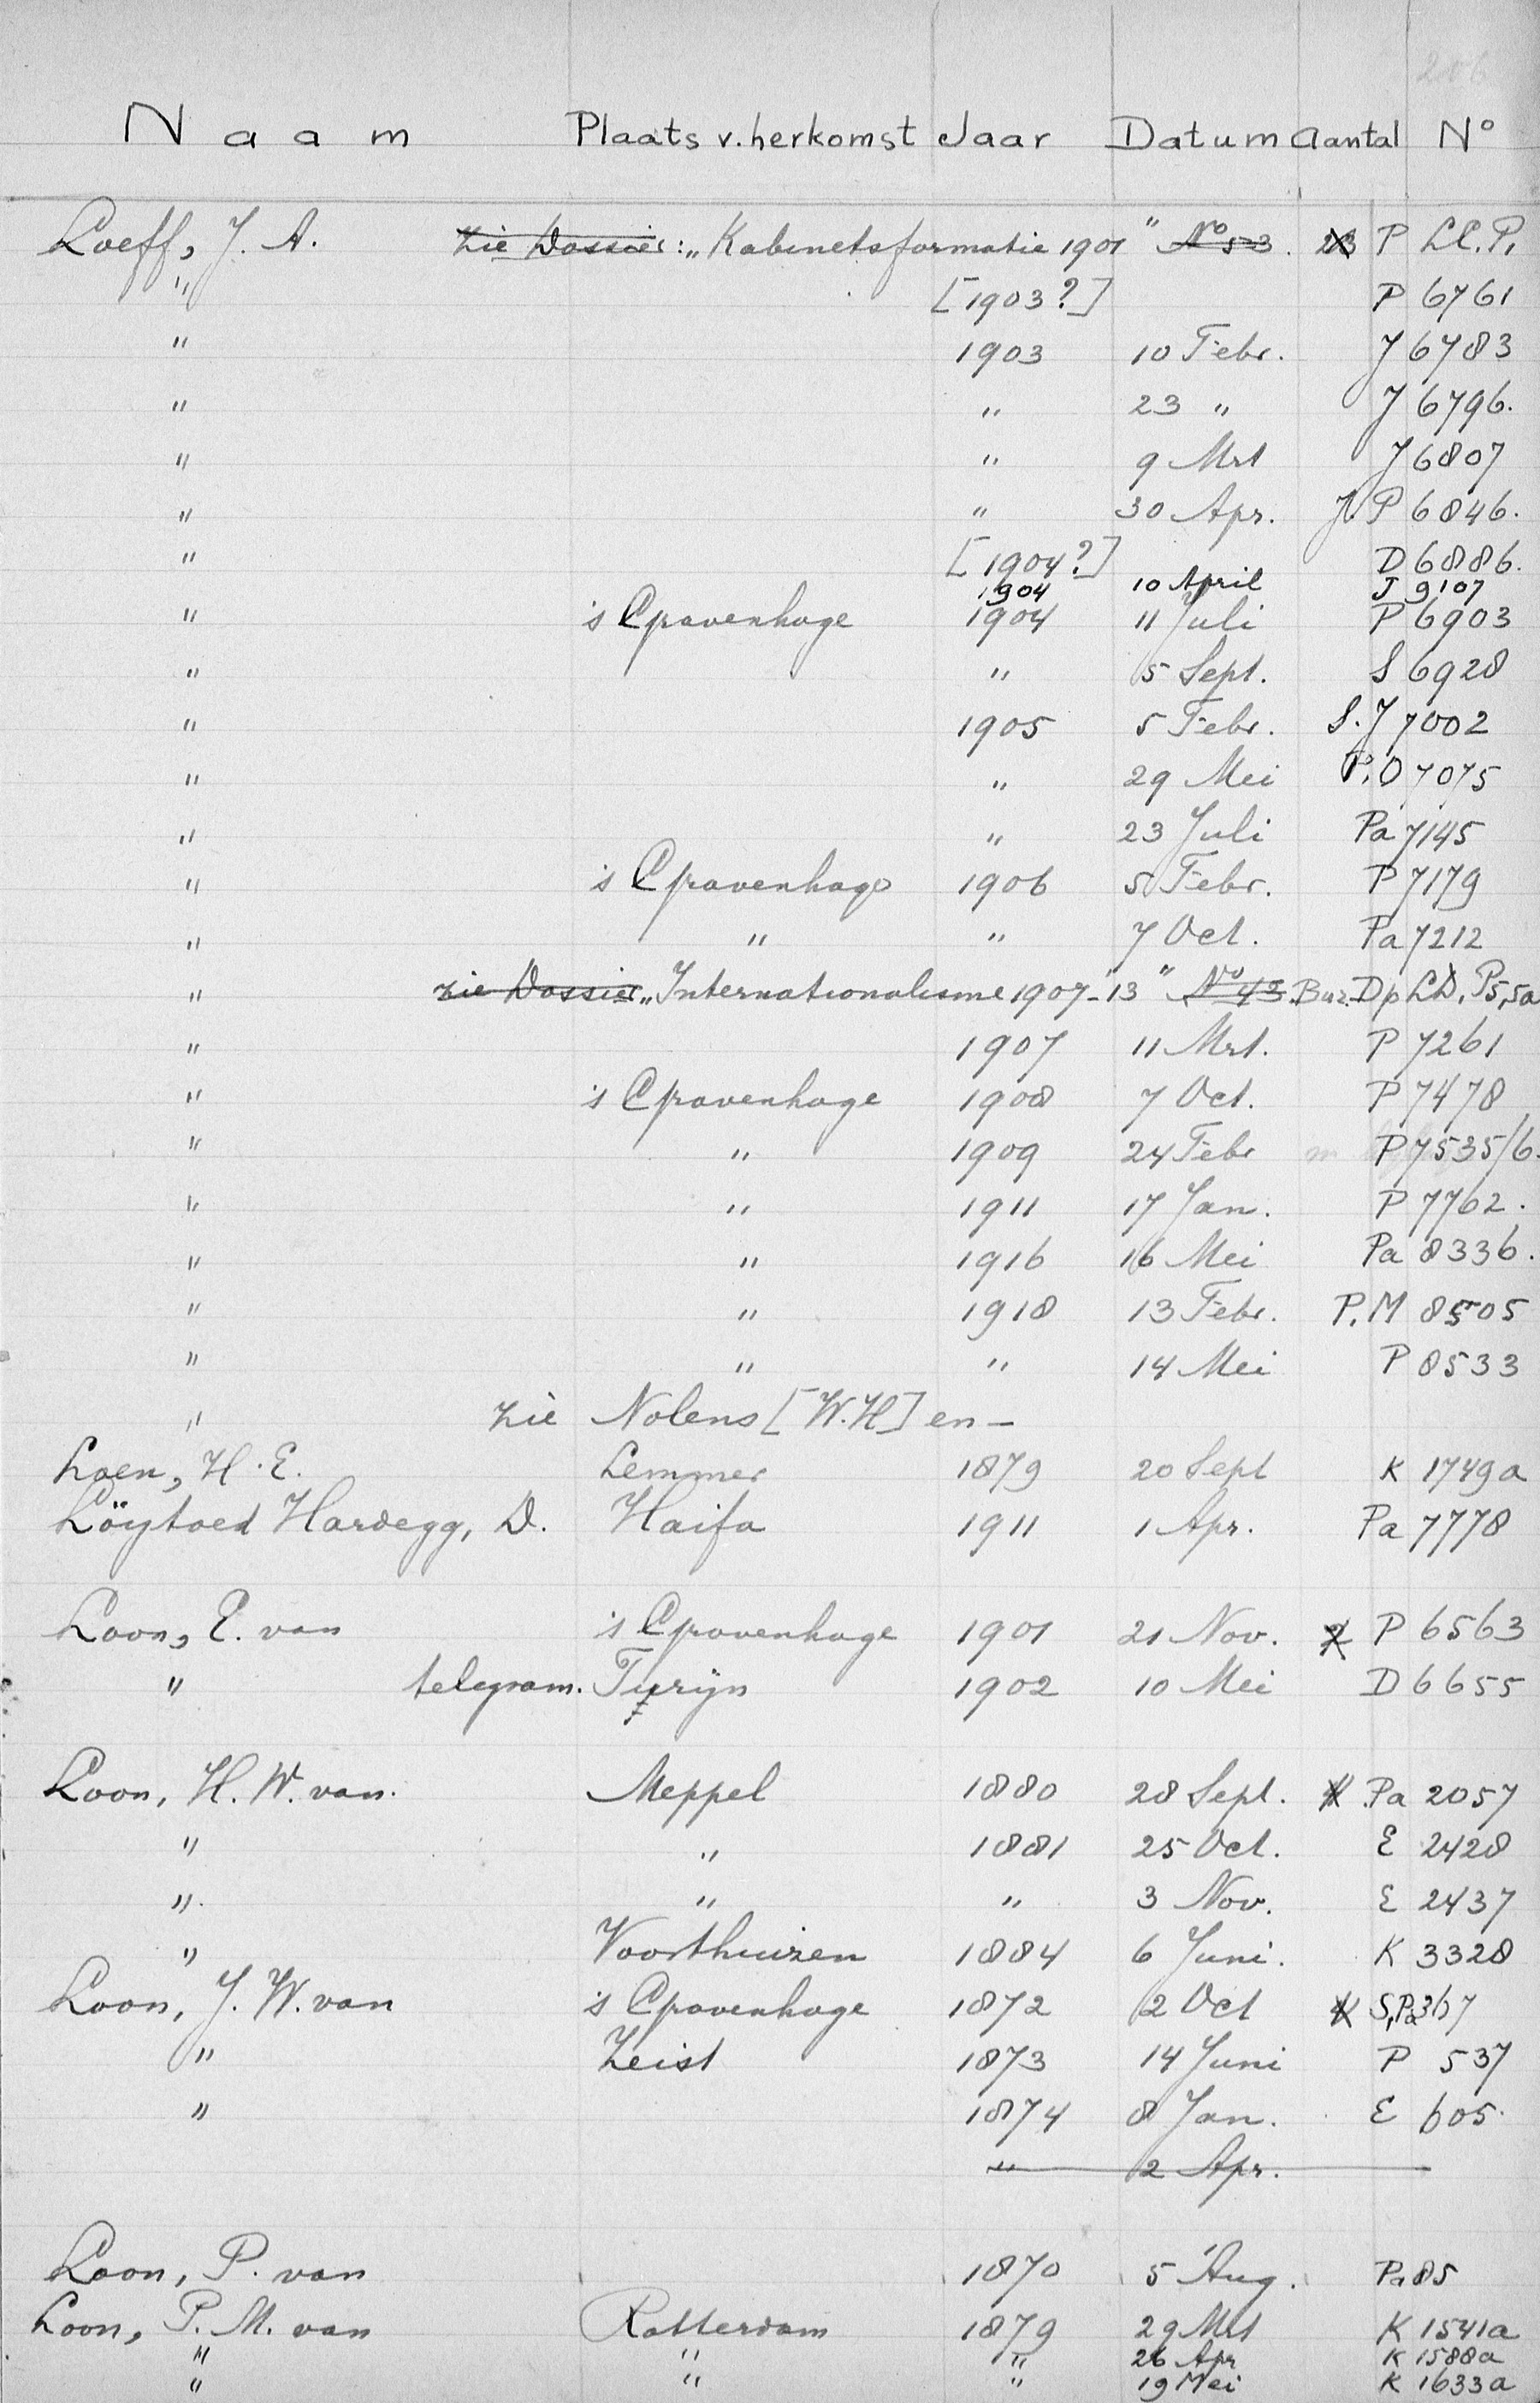 206
Naam Plaats v. herkomst Jaar Datum Aantal No
Loeff, J. A. zie Dossier: „Kabinetsformatie 1901" No 53. 23 P LC. P,
" [1903?] P 6761
" 1903 10 Febr. J 6783
" " 23 " J 6796.
" " 9 Mrt J 6807
" " 30 Apr. J. P 6846.
" [1904?] D 6886.
1904 10 April J 9107
" 's Gravenhage 1904 11 Juli P 6903
" " 5 Sept. S 6928
" 1905 5 Febr. S. J 7002
" " 29 Mei P. O 7075
" " 23 Juli Pa 7145
" 's Gravenhage 1906 5 Febr. P 7179
" " " 7 Oct. Pa 7212
" zie Dossier „Internationalisme 1907-'13" No 43. Buz. Dp LD, P5,5a
" 1907 11 Mrt. P 7261
" 's Gravenhage 1908 7 Oct. P 7478
" " 1909 24 Febr P 7535/6.
" " 1911 17 Jan. P 7762.
" " 1916 16 Mei Pa 8336.
" " 1918 13 Febr. P. M 8505
" " " 14 Mei P 8533
" zie Nolens [W. H] en –
Loen, H. E. Lemmer 1879 20 Sept K 1749a
Löytved Hardegg, D. Haifa 1911 1 Apr. Pa 7778
Loon, E. van 's Gravenhage 1901 21 Nov. 2 P 6563
" telegram. Turijn 1902 10 Mei D 6655
Loon, H. W. van. Meppel 1880 28 Sept. 4 Pa 2057
" " 1881 25 Oct. E 2428
" " " 3 Nov. E 2437
" Voorthuizen 1884 6 Juni. K 3328
Loon, J. W. van 's Gravenhage 1872 2 Oct 4 S, Pa 367
" Zeist 1873 14 Juni P 537
" 1874 8 Jan. E 605.
" 2 Apr.
Loon, P. van 1870 5 Aug. Pa 85
Loon, P. M. van Rotterdam 1879 29 Mrt K 1541a
" " " 26 Apr K 1588a
" " " 19 Mei K 1633a